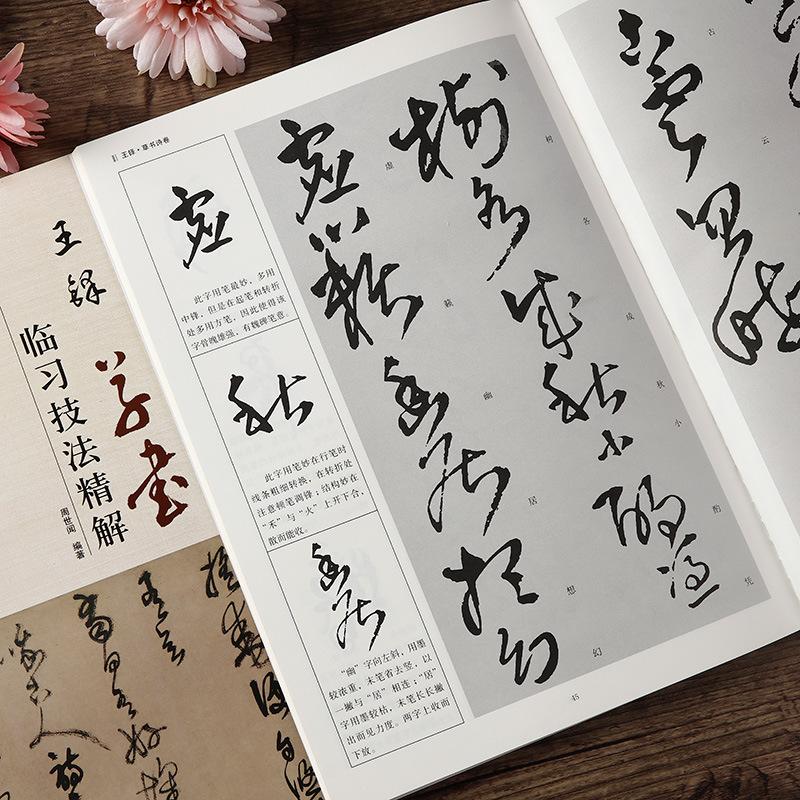 王铎
草书
临习技法精解
周世闻 编著
王铎·草书诗卷
虚
此字用笔最妙，多用
中锋，但是在起笔和转折
处多用方笔，因此使得该
字骨魄雄强，有魏碑笔意。
秋
此字用笔妙在行笔时
线条粗细转换，在转折处
注意顿笔调锋；结构妙在
“禾”与“火”上开下合，
散而能收。
幽居
“幽”字向左斜，用墨
较浓重，末笔省去竖，以
一撇与“居”相连；“居”
字用墨较枯，末笔长长撇
出而见力度。两字上收而
下放。
柯各成秋小酌凭
柯各成秋小酌凭
虚籁幽居想幻
虚籁幽居想幻
45
古云
古云